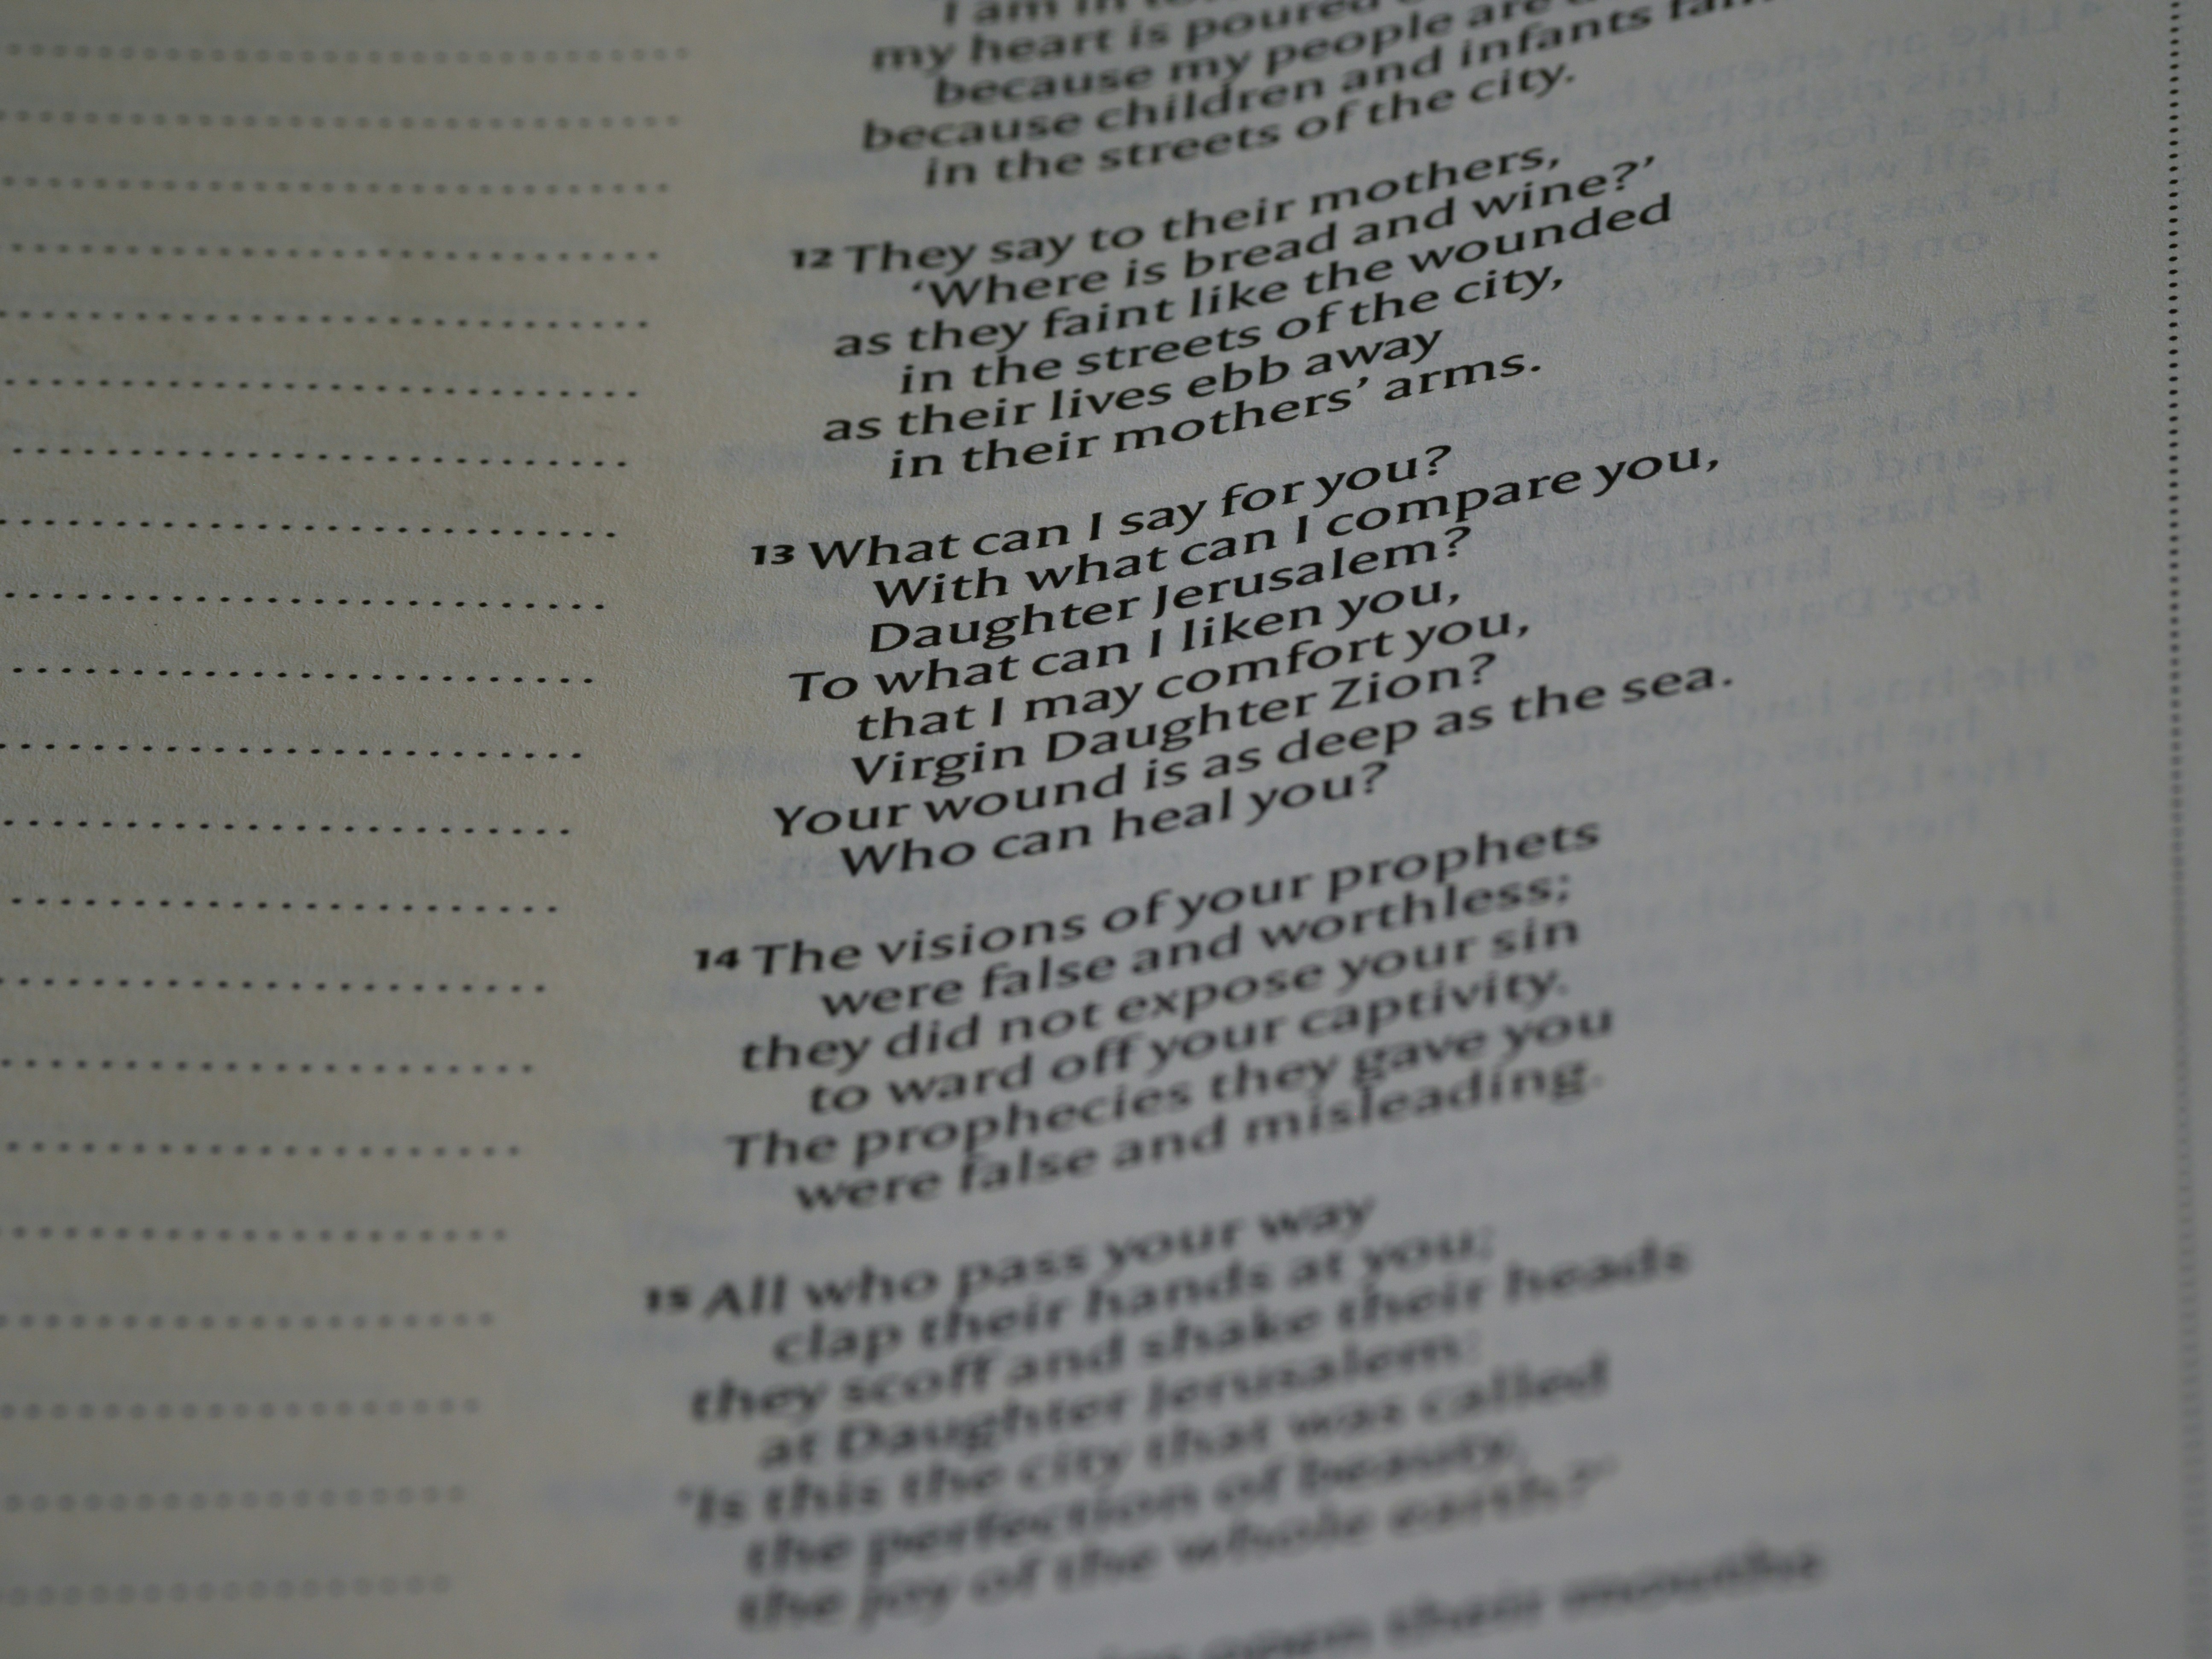 I am in
my heart is poured
because my people are
because children and infants
in the streets of the city.
12 They say to their mothers,
‘Where is bread and wine?’
as they faint like the wounded
in the streets of the city,
as their lives ebb away
in their mothers’ arms.
13 What can I say for you?
With what can I compare you,
Daughter Jerusalem?
To what can I liken you,
that I may comfort you,
Virgin Daughter Zion?
Your wound is as deep as the sea.
Who can heal you?
14 The visions of your prophets
were false and worthless;
they did not expose your sin
to ward off your captivity.
The prophecies they gave you
were false and misleading.
15 All who pass your way
clap their hands at you;
they scoff and shake their heads
at Daughter Jerusalem:
‘Is this the city that was called
the perfection of beauty,
the joy of the whole earth?’
their mouths